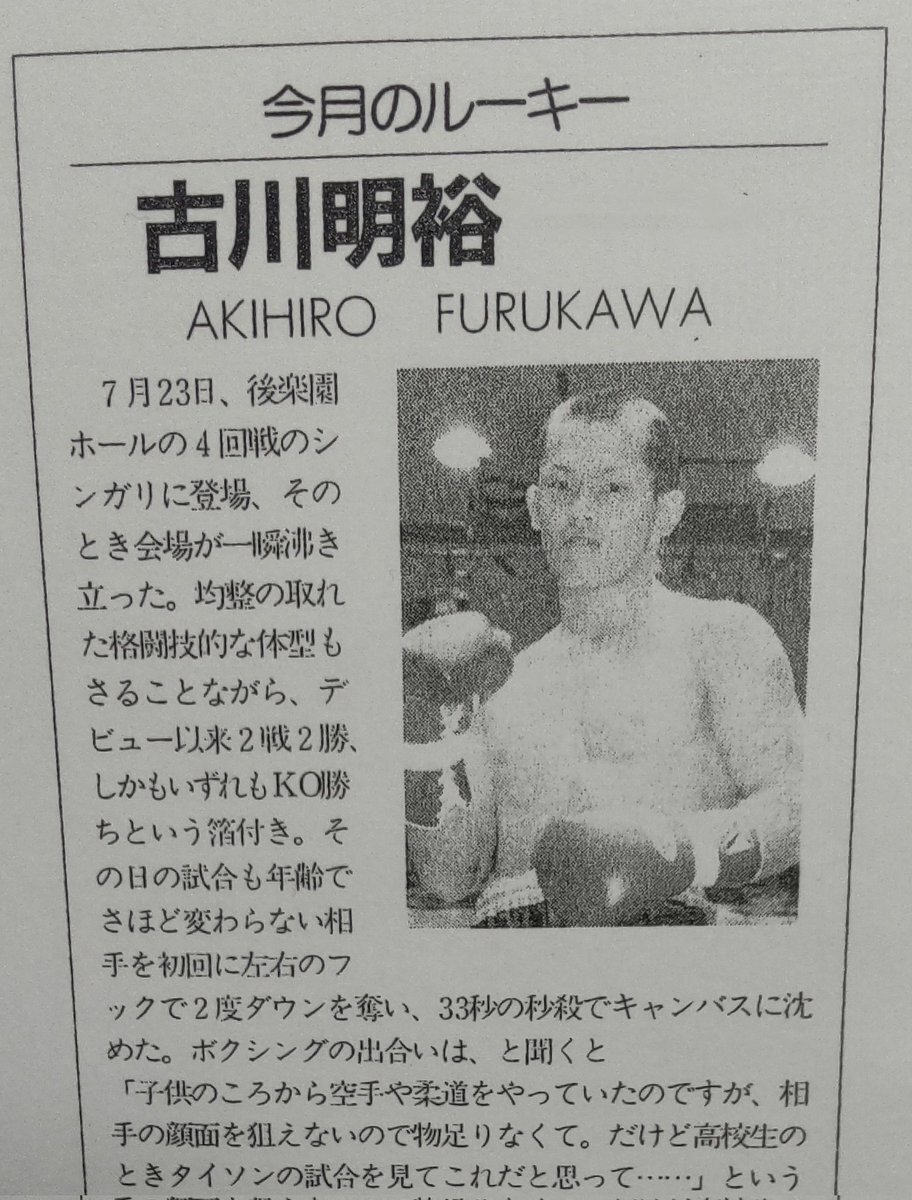 今月のルーキー
古川明裕
AKIHIRO FURUKAWA
7月23日、後楽園
ホールの4回戦のシ
ンガリに登場、その
とき会場が一瞬沸き
立った。均整の取れ
た格闘技的な体型も
さることながら、デ
ビュー以来2戦2勝、
しかもいずれもKO勝
ちという箔付き。そ
の日の試合も年齢で
さほど変わらない相
手を初回に左右のフ
ックで2度ダウンを奪い、33秒の秒殺でキャンバスに沈
めた。ボクシングの出合いは、と聞くと
「子供のころから空手や柔道をやっていたのですが、相
手の顔面を狙えないので物足りなくて。だけど高校生の
ときタイソンの試合を見てこれだと思って……」という